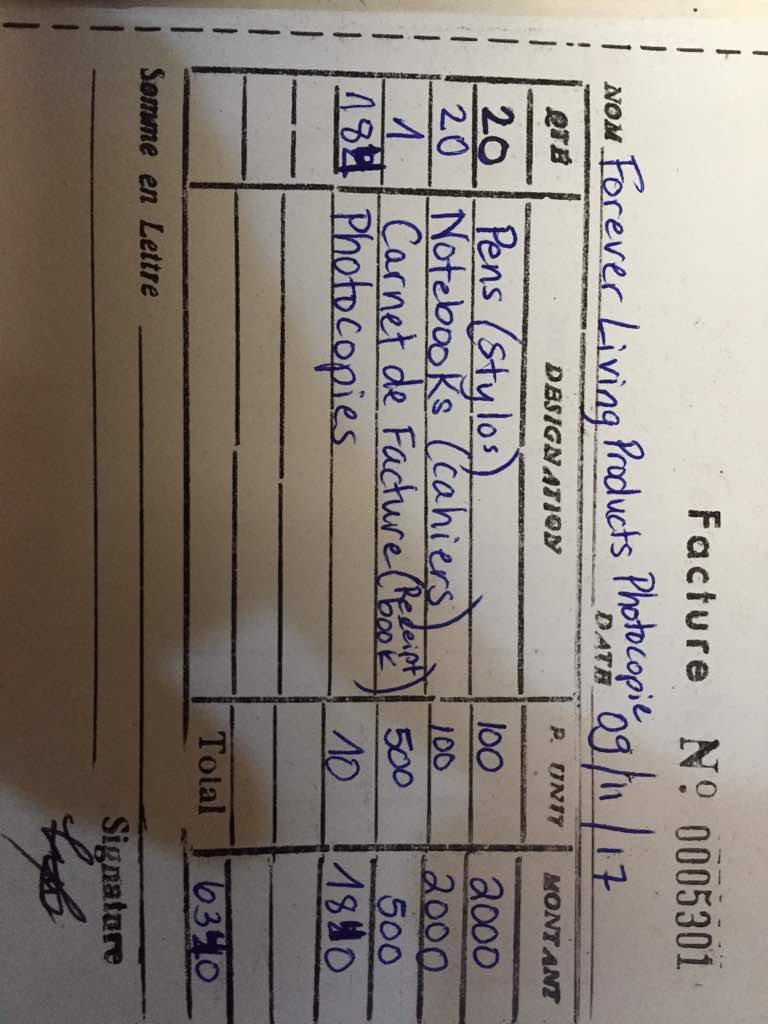 Facture Nº. 0005301
NOM Forever Living Products Photocopie DATE 09/11/17
QTÉ DESIGNATION P. UNIT MONTANT
20 Pens (stylos) 100 2000
20 Notebooks (cahiers) 100 2000
1 Carnet de Facture (Receipt book) 500 500
184 Photocopies 10 1840
Total 6340
Somme en Lettre
Signature